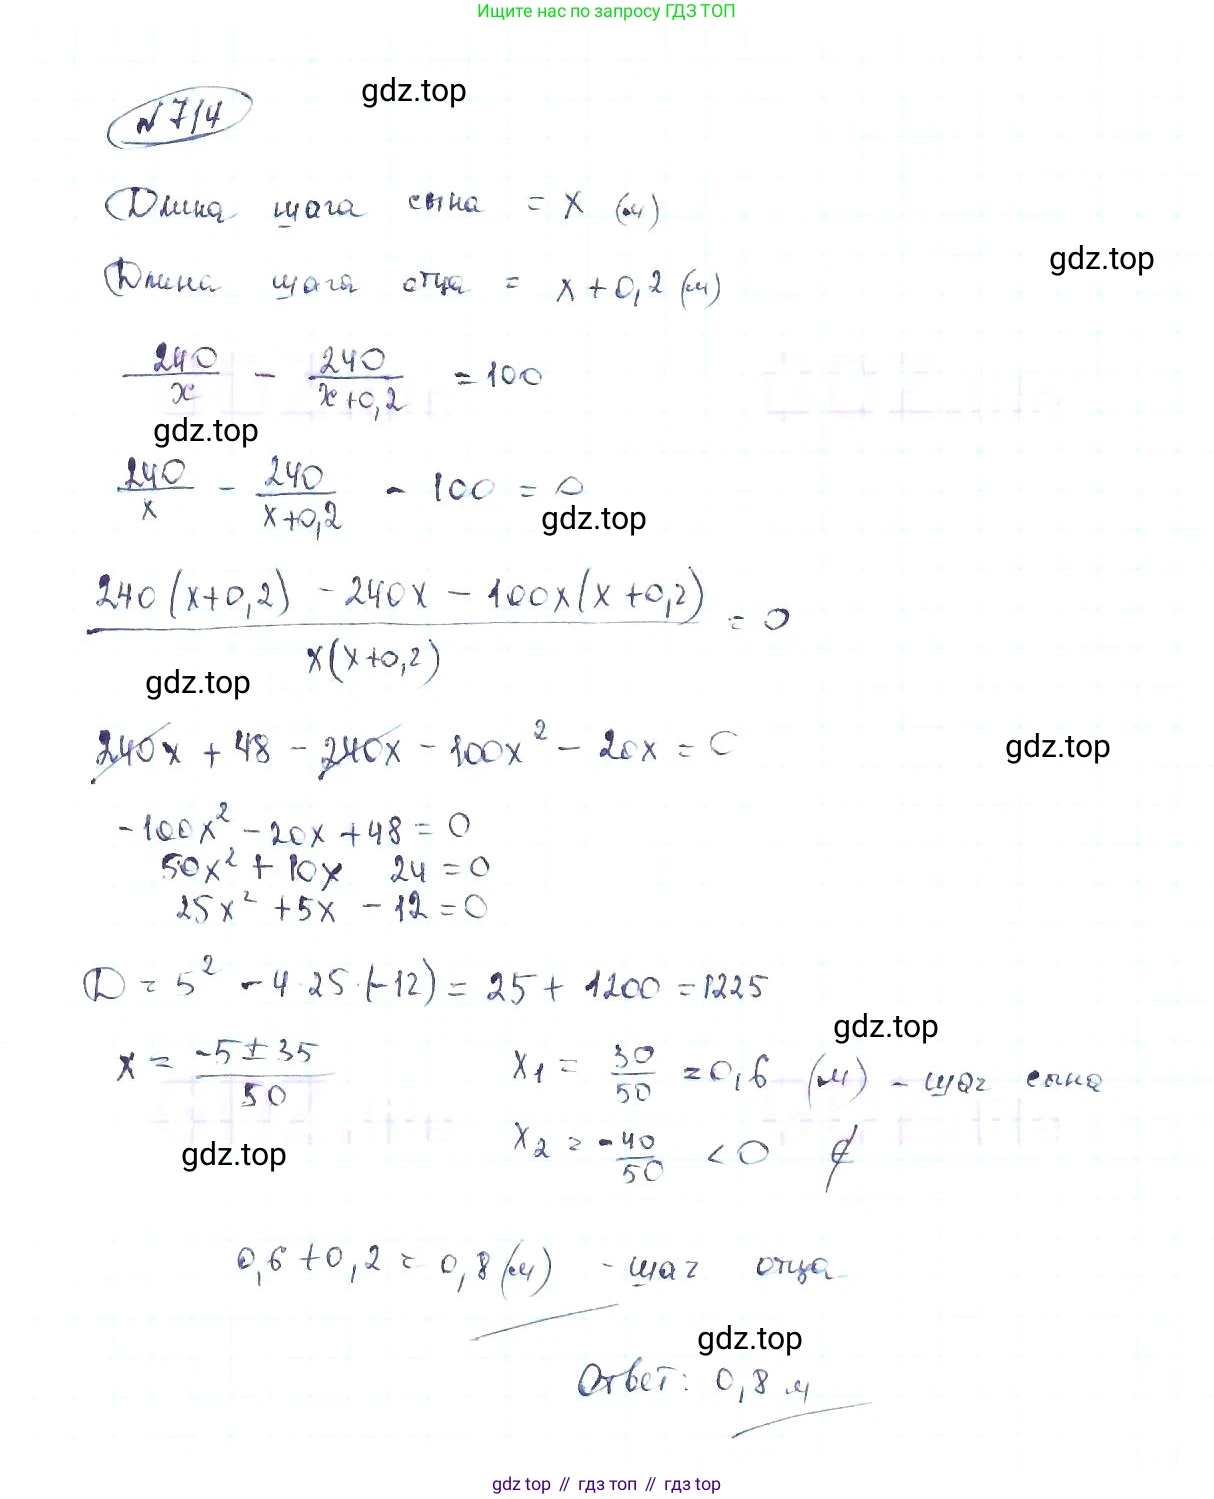 Ищите нас по запросу ГДЗ ТОП
gdz.top
№714
Длина шага сына = x (м)
gdz.top
Длина шага отца = x + 0,2 (м)
240/x - 240/(x+0,2) = 100
gdz.top
240/x - 240/(x+0,2) - 100 = 0
gdz.top
(240(x+0,2) - 240x - 100x(x+0,2))/(x(x+0,2)) = 0
gdz.top
240x + 48 - 240x - 100x² - 20x = 0
gdz.top
-100x² - 20x + 48 = 0
50x² + 10x 24 = 0
25x² + 5x - 12 = 0
D = 5² - 4·25·(-12) = 25 + 1200 = 1225
gdz.top
x = (-5 ± 35)/50 x₁ = 30/50 = 0,6 (м) - шаг сына
x₂ = -40/50 < 0 ∉
gdz.top
0,6 + 0,2 = 0,8 (м) - шаг отца
gdz.top
Ответ: 0,8 м
gdz top // гдз топ // гдз top